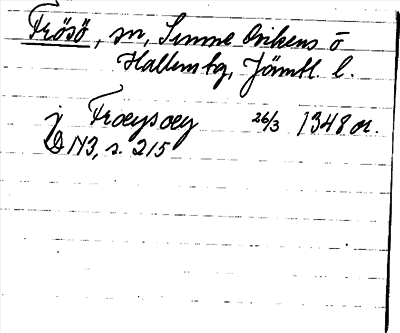 Frösö, sn, Sunne Ovikens o
Hallens tg, Jämtl. l.
i Frœysœy 26/3 1348 or.
DN3, s. 215